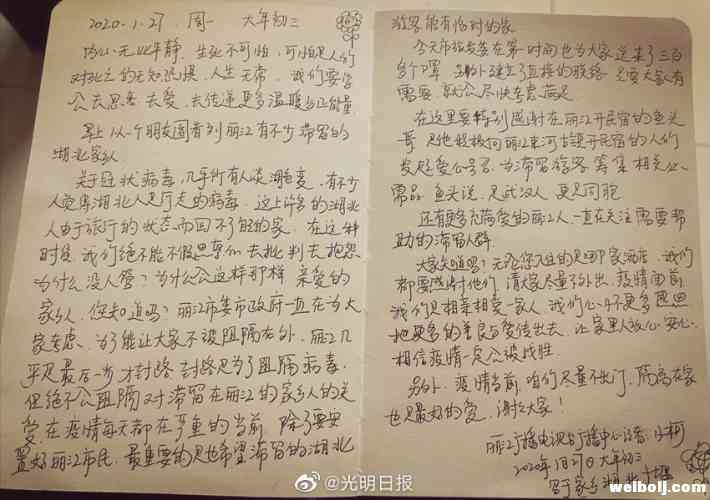 2020.1.27 周一 大年初三
内心无比平静，生死不可怕，可怕是人们
对死亡的无知恐惧，人生无常，我们要学
会去思考 去爱 去传递更多温暖与正能量
早上从一个朋友圈看到丽江有不少滞留的
湖北家人
关于冠状病毒，几乎所有人谈湖色变，有不少
人觉得湖北人是行走的病毒，这上许多的湖北
人由于旅行的状态而回不了自己的家，在这种
时候我们绝不能不假思索们去批判去抱怨
为什么没人管？为什么会这样那样 亲爱的
家人，您知道吗？丽江市委市政府一直在为大
家考虑，为了能让大家不被阻隔在外，丽江几
乎是最后一步才封路，封路是为了阻隔病毒，
但绝不会阻隔对滞留在丽江的家乡人的关
爱 在疫情每天都在严重的当前，除了要安
置好丽江市民，最重要的是也希望滞留的湖北
游客能有临时的家
今天市旅发委在第一时间也为大家送来了三百
个口罩，另外建立了直接的联络，只要大家有
需要 就会尽快考虑满足
在这里要特别感谢在丽江开民宿的鱼头
哥，是他积极向丽江束河古镇开民宿的人们
发起爱心公号召，为滞留游客筹集相关必
需品，鱼头说，是武汉人，更是同胞
还有更多充满爱的丽江人一直在关注需要帮
助的滞留人群
大家知道吗？无论您入住的是哪家酒店，我们
都要感谢他们，请大家尽量不外出，疫情面前
我们是相亲相爱一家人，我们心中不要多恩思
把更多的善良与爱传出去，让家里人放心、安心
相信疫情一定会被战胜
另外，疫情当前，咱们尽量不出门，隔离在家
也是最好的爱，谢谢大家！
丽江广播电视台广播中心记者：小柯
2020年1月27日 大年初三
写于家乡湖北十堰
@光明日报
welbolj.com